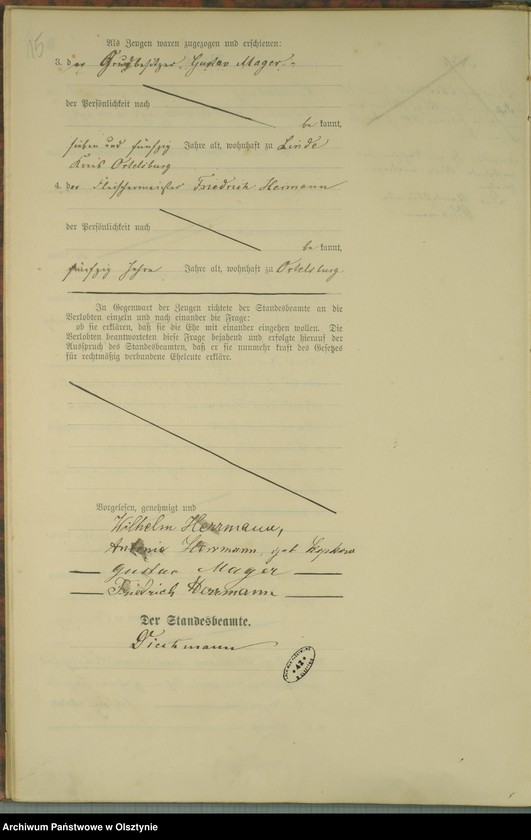 15
Als Zeugen waren zugezogen und erschienen:
3. der Grundbesitzer Gustav Mager
der Persönlichkeit nach
be kannt,
sieben und fünfzig Jahre alt, wohnhaft zu Linde
Kreis Ortelsburg
4. der Fleischermeister Friedrich Hermann
der Persönlichkeit nach
be kannt,
fünfzig Jahre Jahre alt, wohnhaft zu Ortelsburg
In Gegenwart der Zeugen richtete der Standesbeamte an die
Verlobten einzeln und nach einander die Frage:
ob sie erklären, daß sie die Ehe mit einander eingehen wollen. Die
Verlobten beantworteten diese Frage bejahend und erfolgte hierauf der
Ausspruch des Standesbeamten, daß er sie nunmehr kraft des Gesetzes
für rechtmäßig verbundene Eheleute erkläre.
Vorgelesen, genehmigt und
Wilhelm Herrmann,
Antonie Herrmann, geb.
Gustav Mager
Friedrich Herrmann
Der Standesbeamte.
42
Archiwum Państwowe w Olsztynie